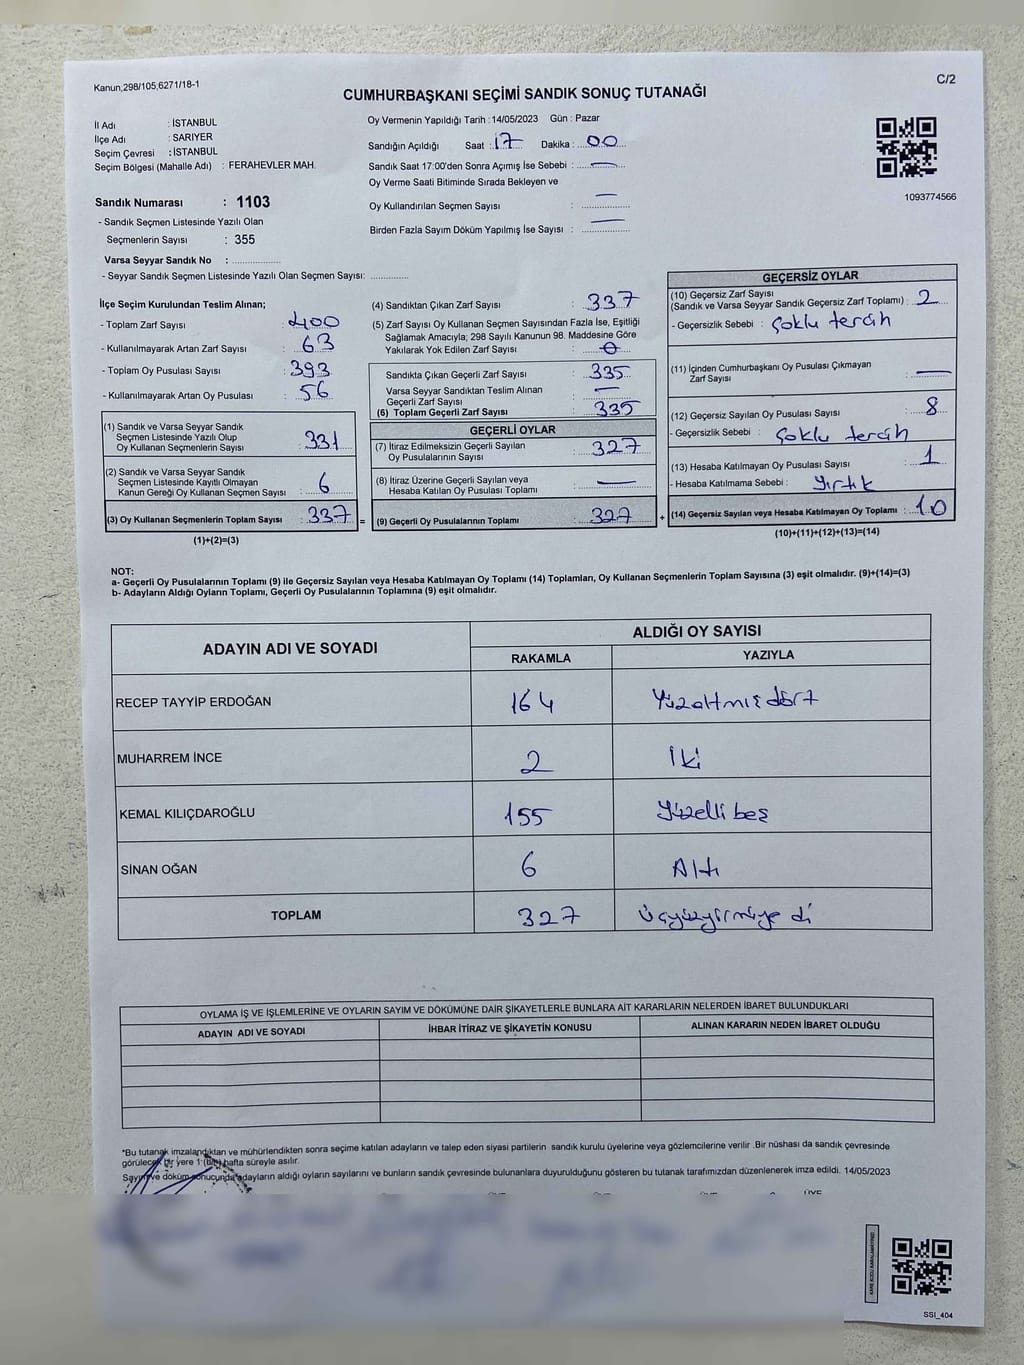 Kanun;298/105;6271/18-1
C/2
CUMHURBAŞKANI SEÇİMİ SANDIK SONUÇ TUTANAĞI
İl Adı : İSTANBUL
İlçe Adı : SARIYER
Seçim Çevresi : İSTANBUL
Seçim Bölgesi (Mahalle Adı) : FERAHEVLER MAH.
Sandık Numarası : 1103
- Sandık Seçmen Listesinde Yazılı Olan
Seçmenlerin Sayısı : 355
Varsa Seyyar Sandık No : ................
- Seyyar Sandık Seçmen Listesinde Yazılı Olan Seçmen Sayısı: .............
Oy Vermenin Yapıldığı Tarih : 14/05/2023 Gün : Pazar
Sandığın Açıldığı Saat : 17 Dakika : 00
Sandık Saat 17:00'den Sonra Açımış İse Sebebi : —
Oy Verme Saati Bitiminde Sırada Bekleyen ve
Oy Kullandırılan Seçmen Sayısı : —
Birden Fazla Sayım Döküm Yapılmış İse Sayısı : —
1093774566
İlçe Seçim Kurulundan Teslim Alınan;
- Toplam Zarf Sayısı : 400
- Kullanılmayarak Artan Zarf Sayısı : 63
- Toplam Oy Pusulası Sayısı : 393
- Kullanılmayarak Artan Oy Pusulası : 56
(1) Sandık ve Varsa Seyyar Sandık
Seçmen Listesinde Yazılı Olup
Oy Kullanan Seçmenlerin Sayısı : 331
(2) Sandık ve Varsa Seyyar Sandık
Seçmen Listesinde Kayıtlı Olmayan
Kanun Gereği Oy Kullanan Seçmen Sayısı : 6
(3) Oy Kullanan Seçmenlerin Toplam Sayısı : 337 =
(1)+(2)=(3)
(4) Sandıktan Çıkan Zarf Sayısı : 337
(5) Zarf Sayısı Oy Kullanan Seçmen Sayısından Fazla İse, Eşitliği
Sağlamak Amacıyla; 298 Sayılı Kanunun 98. Maddesine Göre
Yakılarak Yok Edilen Zarf Sayısı : 0
Sandıkta Çıkan Geçerli Zarf Sayısı : 335
Varsa Seyyar Sandıktan Teslim Alınan
Geçerli Zarf Sayısı : —
(6) Toplam Geçerli Zarf Sayısı : 335
GEÇERLİ OYLAR
(7) İtiraz Edilmeksizin Geçerli Sayılan
Oy Pusulalarının Sayısı : 327
(8) İtiraz Üzerine Geçerli Sayılan veya
Hesaba Katılan Oy Pusulası Toplamı : —
(9) Geçerli Oy Pusulalarının Toplamı : 327 +
GEÇERSİZ OYLAR
(10) Geçersiz Zarf Sayısı
(Sandık ve Varsa Seyyar Sandık Geçersiz Zarf Toplamı) : 2
- Geçersizlik Sebebi : Çoklu tercih
(11) İçinden Cumhurbaşkanı Oy Pusulası Çıkmayan
Zarf Sayısı : —
(12) Geçersiz Sayılan Oy Pusulası Sayısı : 8
- Geçersizlik Sebebi : Çoklu tercih
(13) Hesaba Katılmayan Oy Pusulası Sayısı : 1
- Hesaba Katılmama Sebebi : Yırtık
(14) Geçersiz Sayılan veya Hesaba Katılmayan Oy Toplamı : 10
(10)+(11)+(12)+(13)=(14)
NOT:
a- Geçerli Oy Pusulalarının Toplamı (9) ile Geçersiz Sayılan veya Hesaba Katılmayan Oy Toplamı (14) Toplamları, Oy Kullanan Seçmenlerin Toplam Sayısına (3) eşit olmalıdır. (9)+(14)=(3)
b- Adayların Aldığı Oyların Toplamı, Geçerli Oy Pusulalarının Toplamına (9) eşit olmalıdır.
ADAYIN ADI VE SOYADI ALDIĞI OY SAYISI
RAKAMLA YAZIYLA
RECEP TAYYİP ERDOĞAN 164 Yüzaltmışdört
MUHARREM İNCE 2 İki
KEMAL KILIÇDAROĞLU 155 Yüzellibeş
SİNAN OĞAN 6 Altı
TOPLAM 327 Üçyüzyirmiyedi
OYLAMA İŞ VE İŞLEMLERİNE VE OYLARIN SAYIM VE DÖKÜMÜNE DAİR ŞİKAYETLERLE BUNLARA AİT KARARLARIN NELERDEN İBARET BULUNDUKLARI
ADAYIN ADI VE SOYADI İHBAR İTİRAZ VE ŞİKAYETİN KONUSU ALINAN KARARIN NEDEN İBARET OLDUĞU
*Bu tutanak imzalandıktan ve mühürlendikten sonra seçime katılan adayların ve talep eden siyasi partilerin sandık kurulu üyelerine veya gözlemcilerine verilir .Bir nüshası da sandık çevresinde
görülecek bir yere 1 (bir) hafta süreyle asılır.
Sayım ve döküm sonucunda adayların aldığı oyların sayılarını ve bunların sandık çevresinde bulunanlara duyurulduğunu gösteren bu tutanak tarafımızdan düzenlenerek imza edildi. 14/05/2023
ÜYE
SSI_404